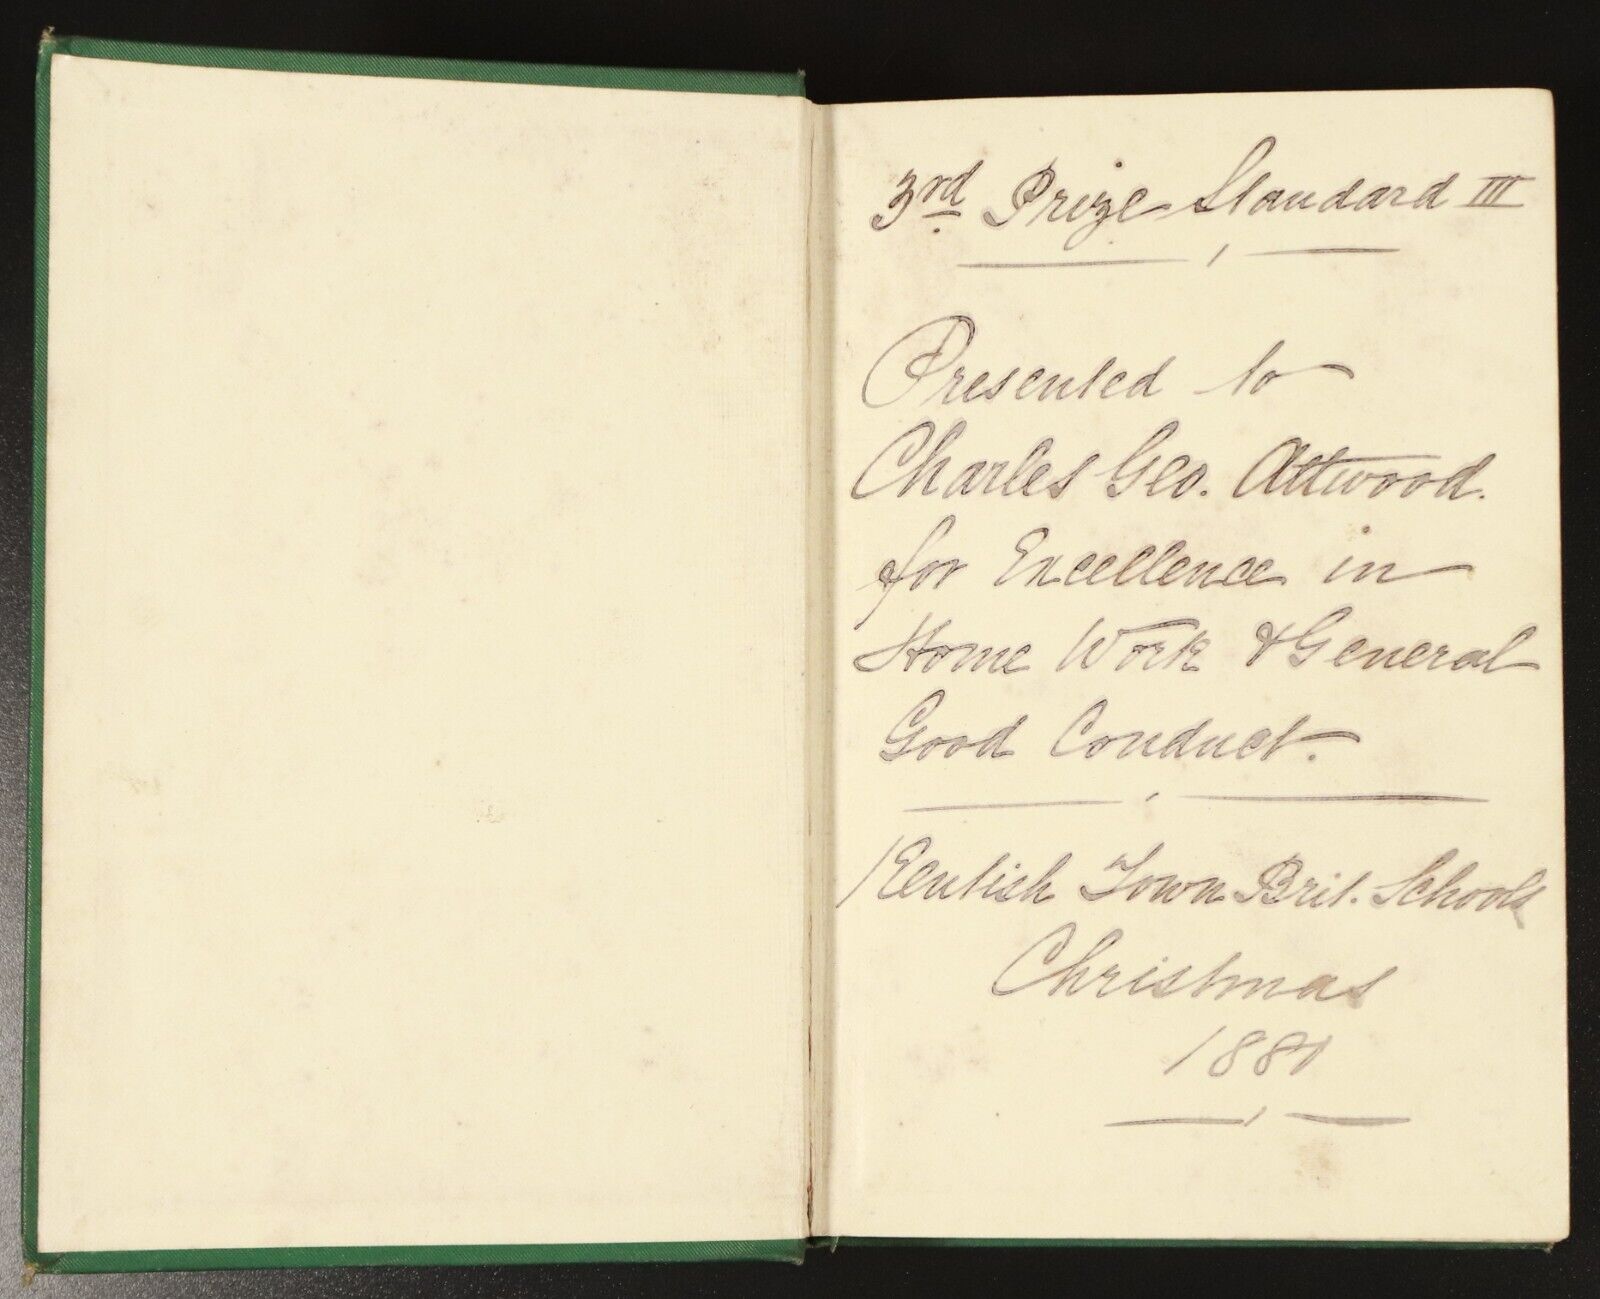 3rd Prize Standard III
Presented to
Charles Geo. Attwood.
for Excellence in
Home Work & General
Good Conduct.
Kentish Town Brit. Schools
Christmas